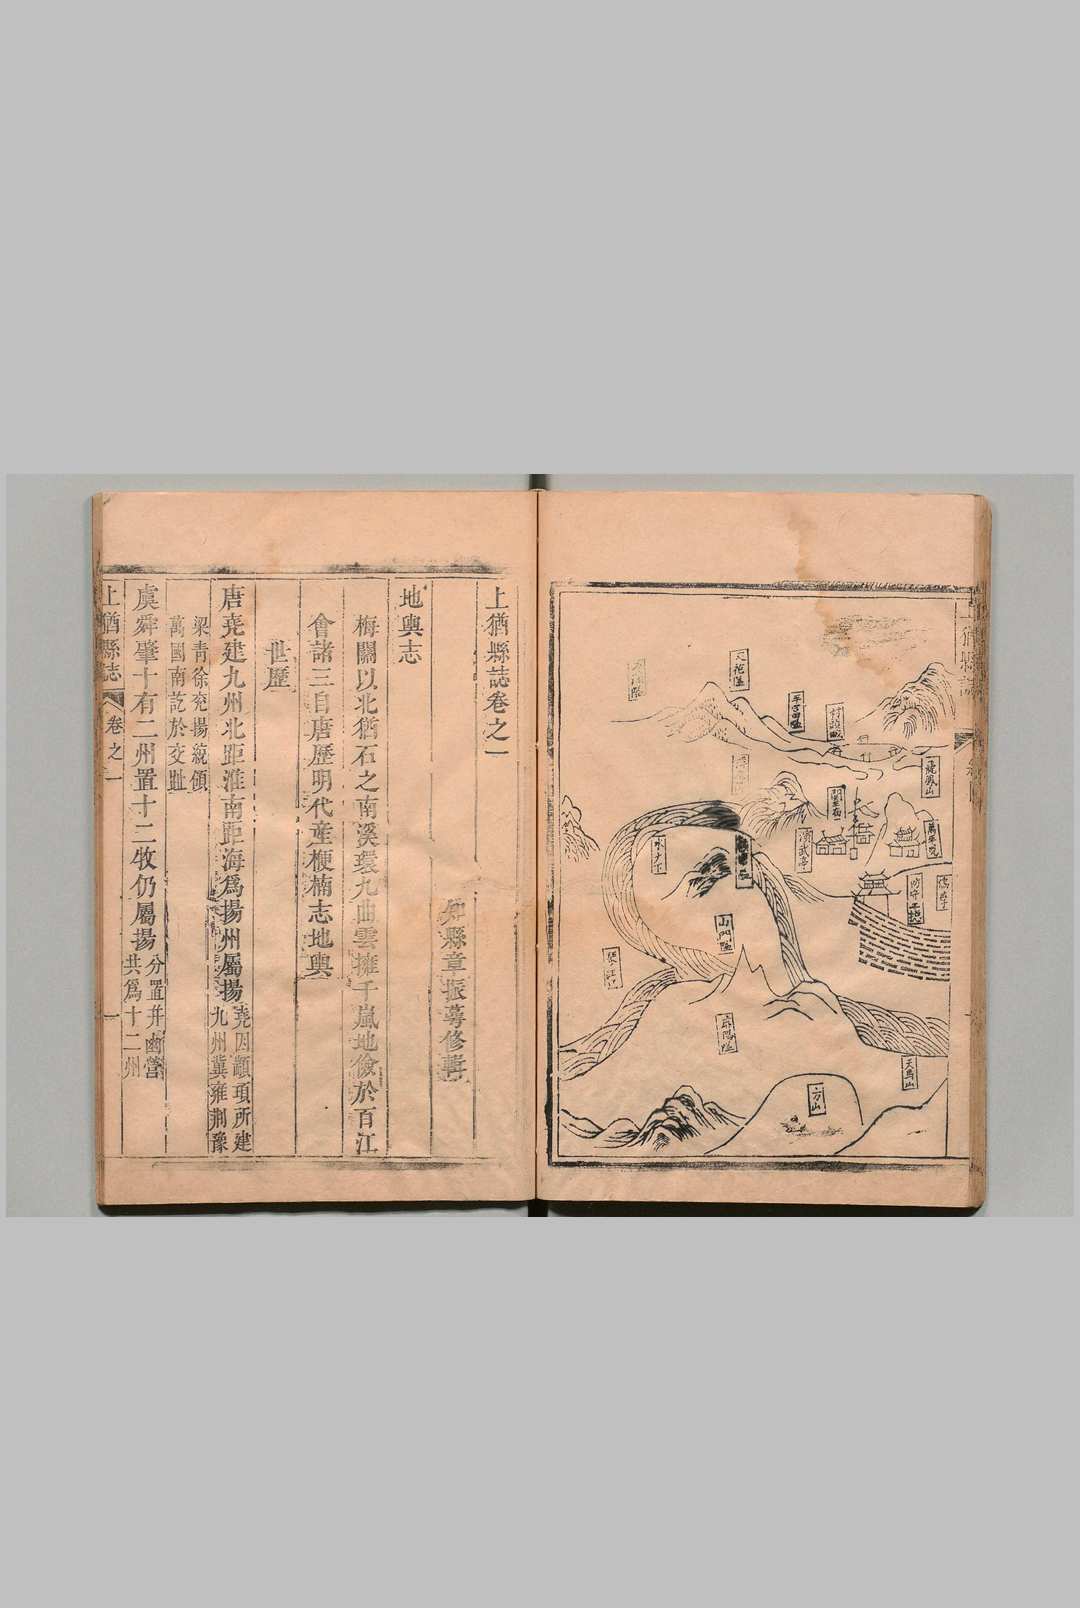 上猶縣誌
飛鳳山
天馬山
演武亭
水力下
山門隘
方山
上猶縣誌卷之一
知縣章振萼修輯
地輿志
梅關以北猶石之南溪環九曲雲擁千嵐地儉於百江
會諸三自唐歷明代産楩楠志地輿
世歷
唐堯建九州北距淮南距海爲揚州屬揚
堯因顓頊所建
九州冀雍荆豫
梁青徐兖揚統領
萬國南訖於交趾
虞舜肇十有二州置十二牧仍屬揚
分置并幽營
共爲十二州
上猶縣誌
卷之一
一